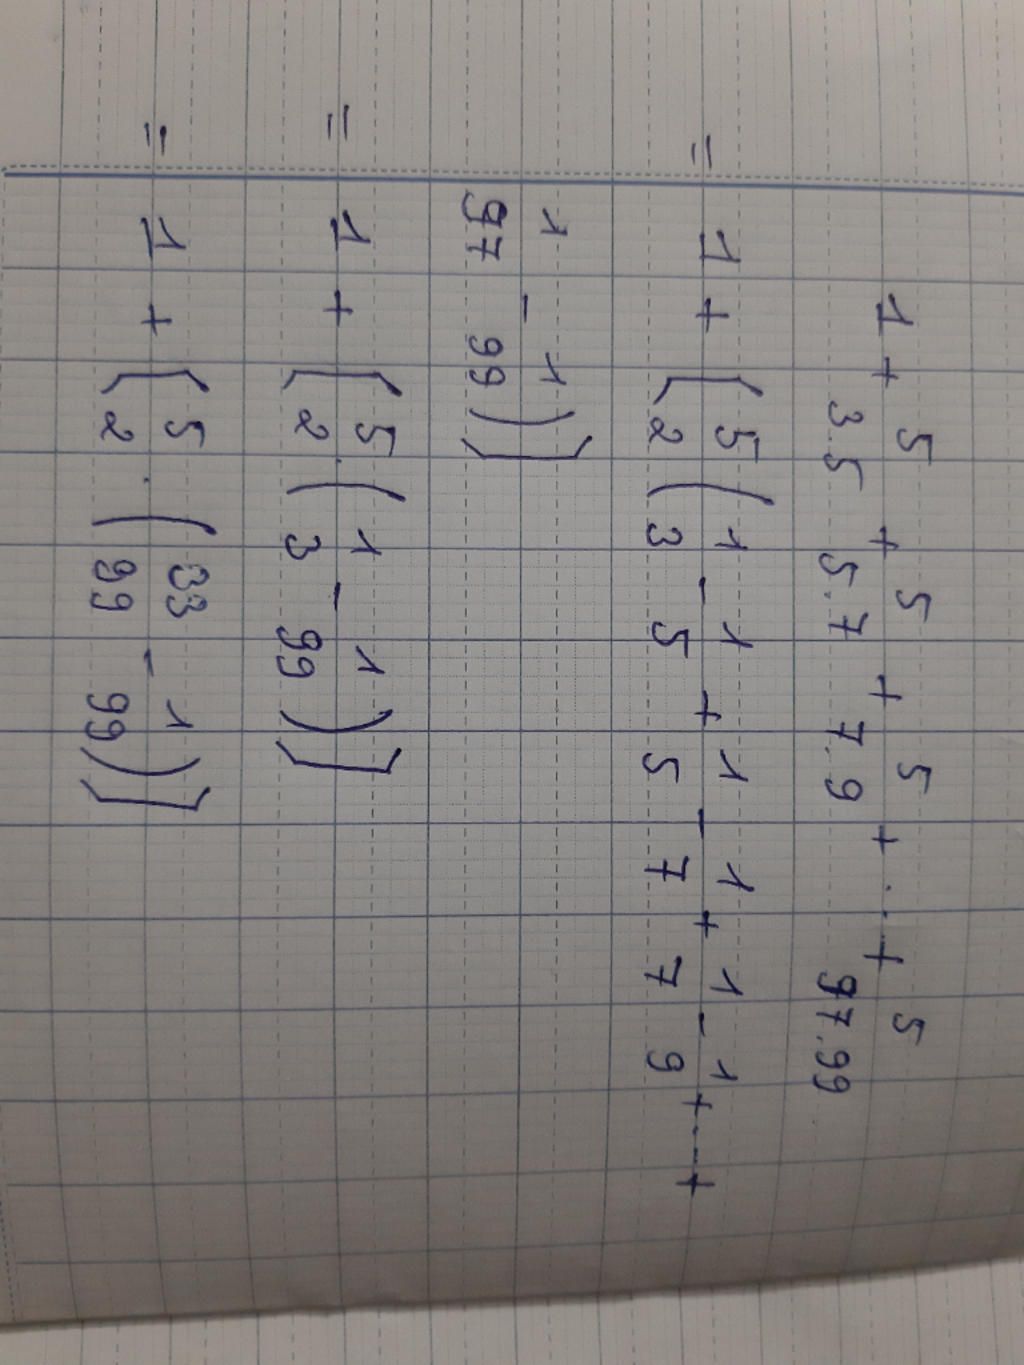 1 + 5/3.5 + 5/5.7 + 5/7.9 + ... + 5/97.99
= 1 + [5/2 (1/3 - 1/5 + 1/5 - 1/7 + 1/7 - 1/9 + ... +
1/97 - 1/99)]
= 1 + [5/2 . (1/3 - 1/99)]
= 1 + [5/2 . (33/99 - 1/99)]